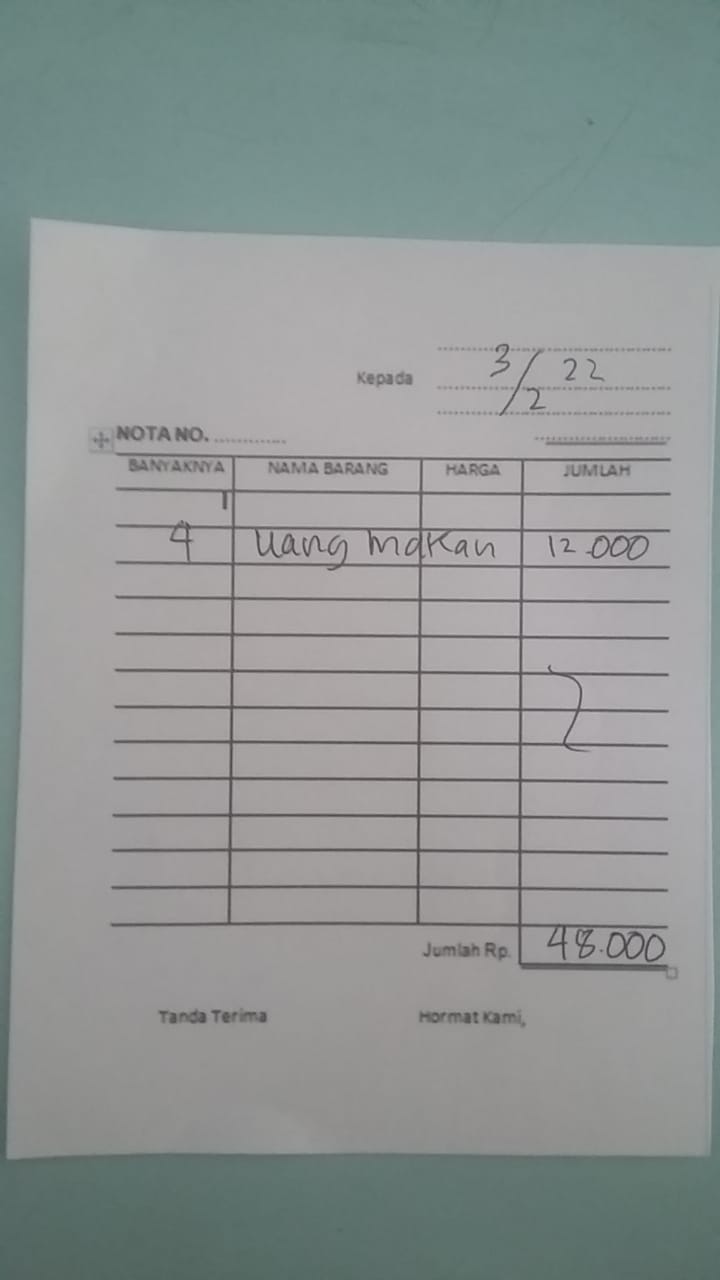 3/2 22
Kepada
NOTA NO. ............
BANYAKNYA NAMA BARANG HARGA JUMLAH
4 uang makan 12.000
Jumlah Rp. 48.000
Tanda Terima Hormat Kami,